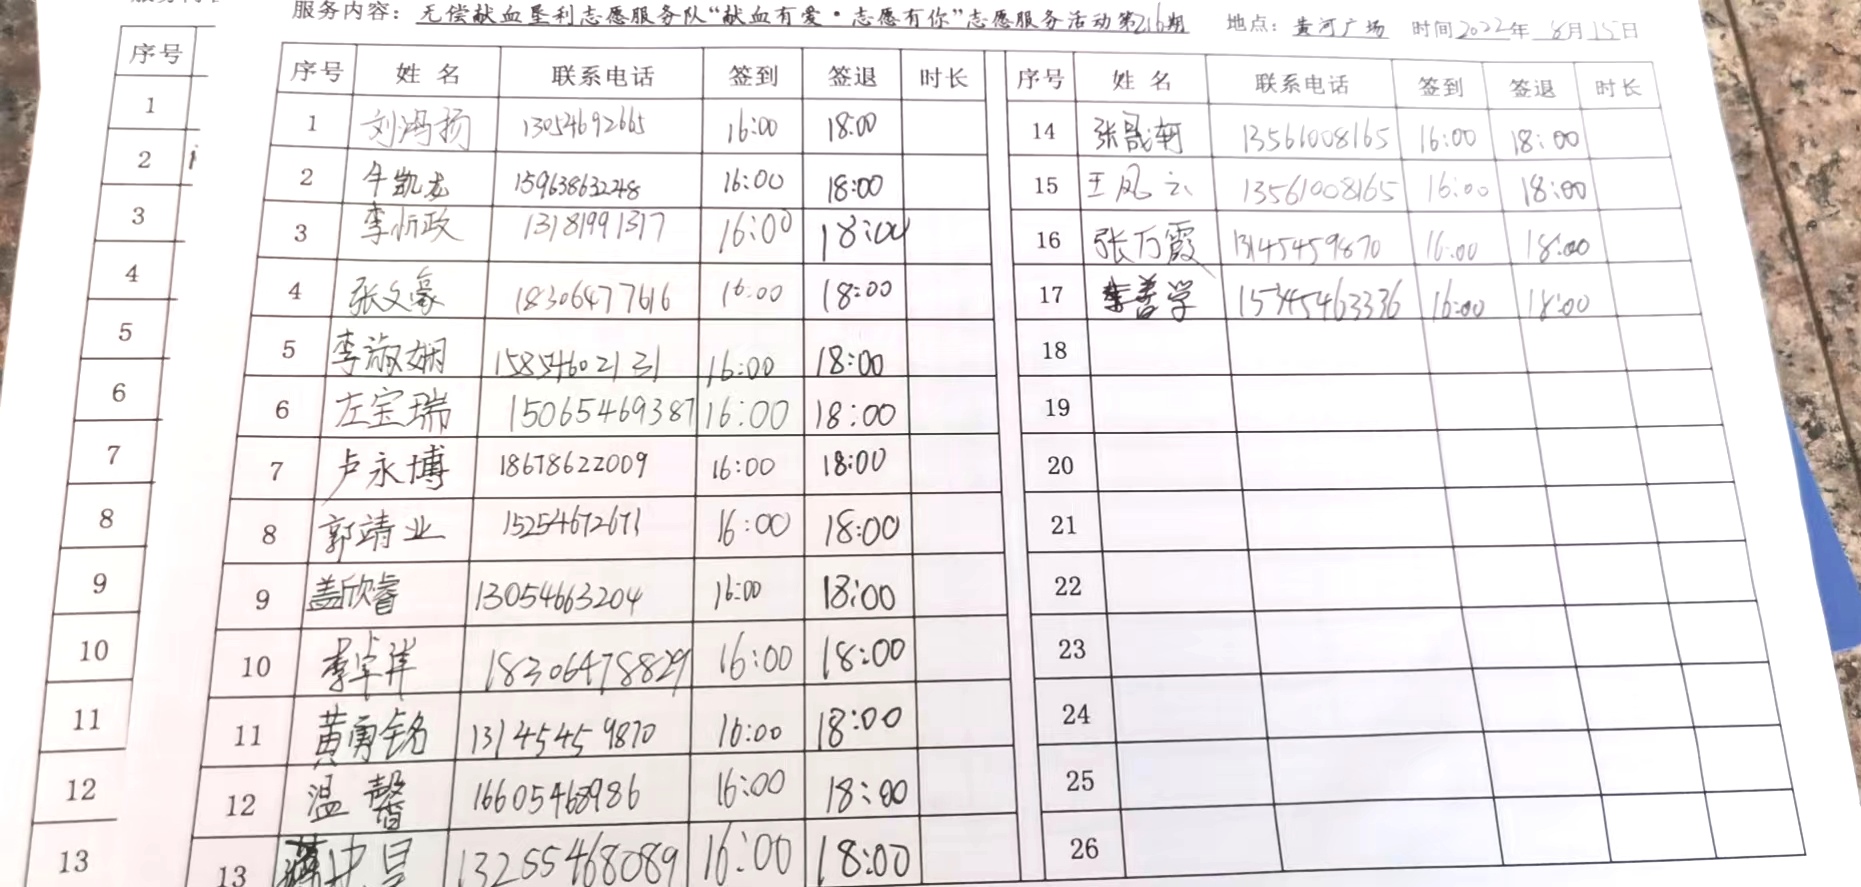 服务内容：无偿献血垦利志愿服务队“献血有爱·志愿有你”志愿服务活动第216期 地点：黄河广场 时间2022年 8月15日
序号 姓名 联系电话 签到 签退 时长 序号 姓名 联系电话 签到 签退 时长
1 刘鸿扬 13054692665 16:00 18:00 14 张晟轩 13561008165 16:00 18:00
2 牛凯龙 15963863248 16:00 18:00 15 王凤云 13561008165 16:00 18:00
3 李忻政 13181991317 16:00 18:00 16 张万霞 13145459870 16:00 18:00
4 张文豪 18306477616 16:00 18:00 17 李善学 15345463336 16:00 18:00
5 李淑娴 15854602131 16:00 18:00 18
6 左宝瑞 15065469387 16:00 18:00 19
7 卢永博 18678622009 16:00 18:00 20
8 郭靖业 15254672671 16:00 18:00 21
9 盖欣睿 13054663204 16:00 18:00 22
10 李卓洋 18306478829 16:00 18:00 23
11 黄勇铭 13145459870 16:00 18:00 24
12 温馨 16605468986 16:00 18:00 25
13 13255468089 16:00 18:00 26
序号
1
2
3
4
5
6
7
8
9
10
11
12
13